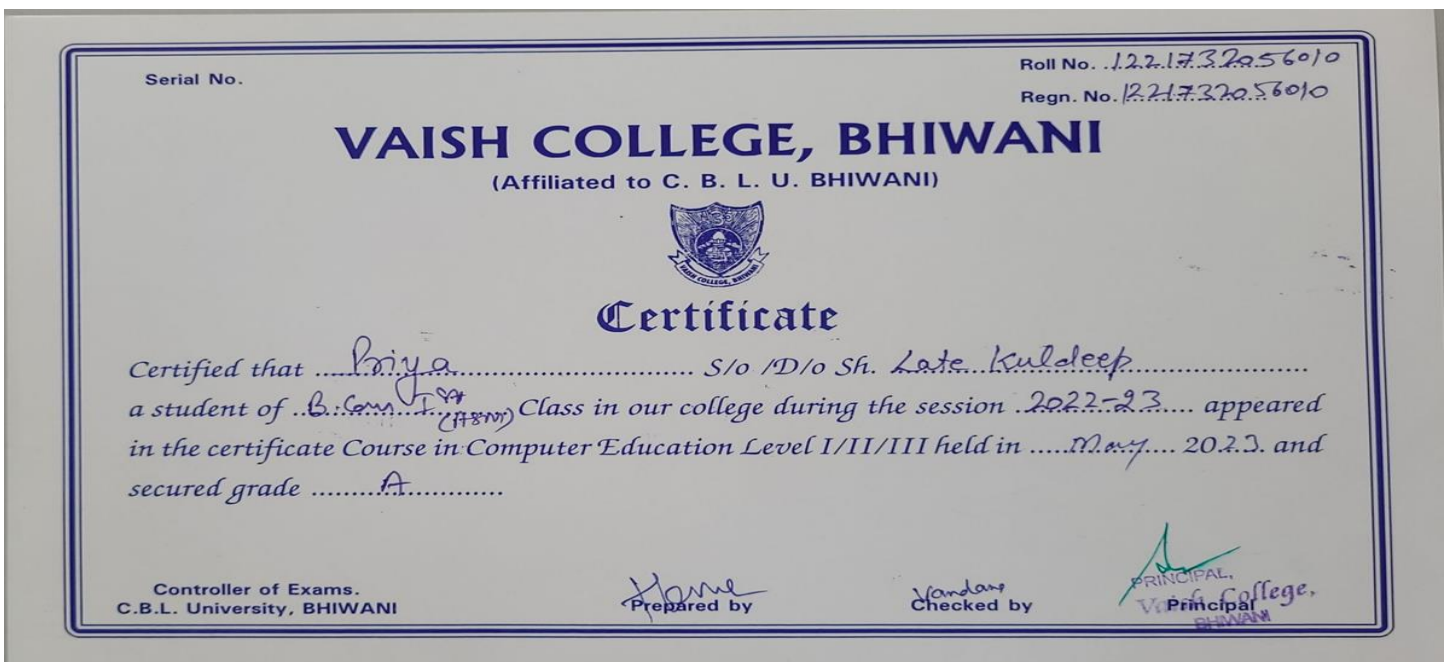 Serial No.
Roll No. 1221732056010
Regn. No. 1221732056010
VAISH COLLEGE, BHIWANI
(Affiliated to C. B. L. U. BHIWANI)
VAISH COLLEGE, BHIWANI
Certificate
Certified that Priya S/o /D/o Sh. Late Kuldeep
a student of B.Com I Class in our college during the session 2022-23 appeared
in the certificate Course in Computer Education Level I/II/III held in May 2023. and
secured grade A
Controller of Exams.
C.B.L. University, BHIWANI
Prepared by
Vandana
Checked by
PRINCIPAL,
Vaish College,
BHIWANI
Principal